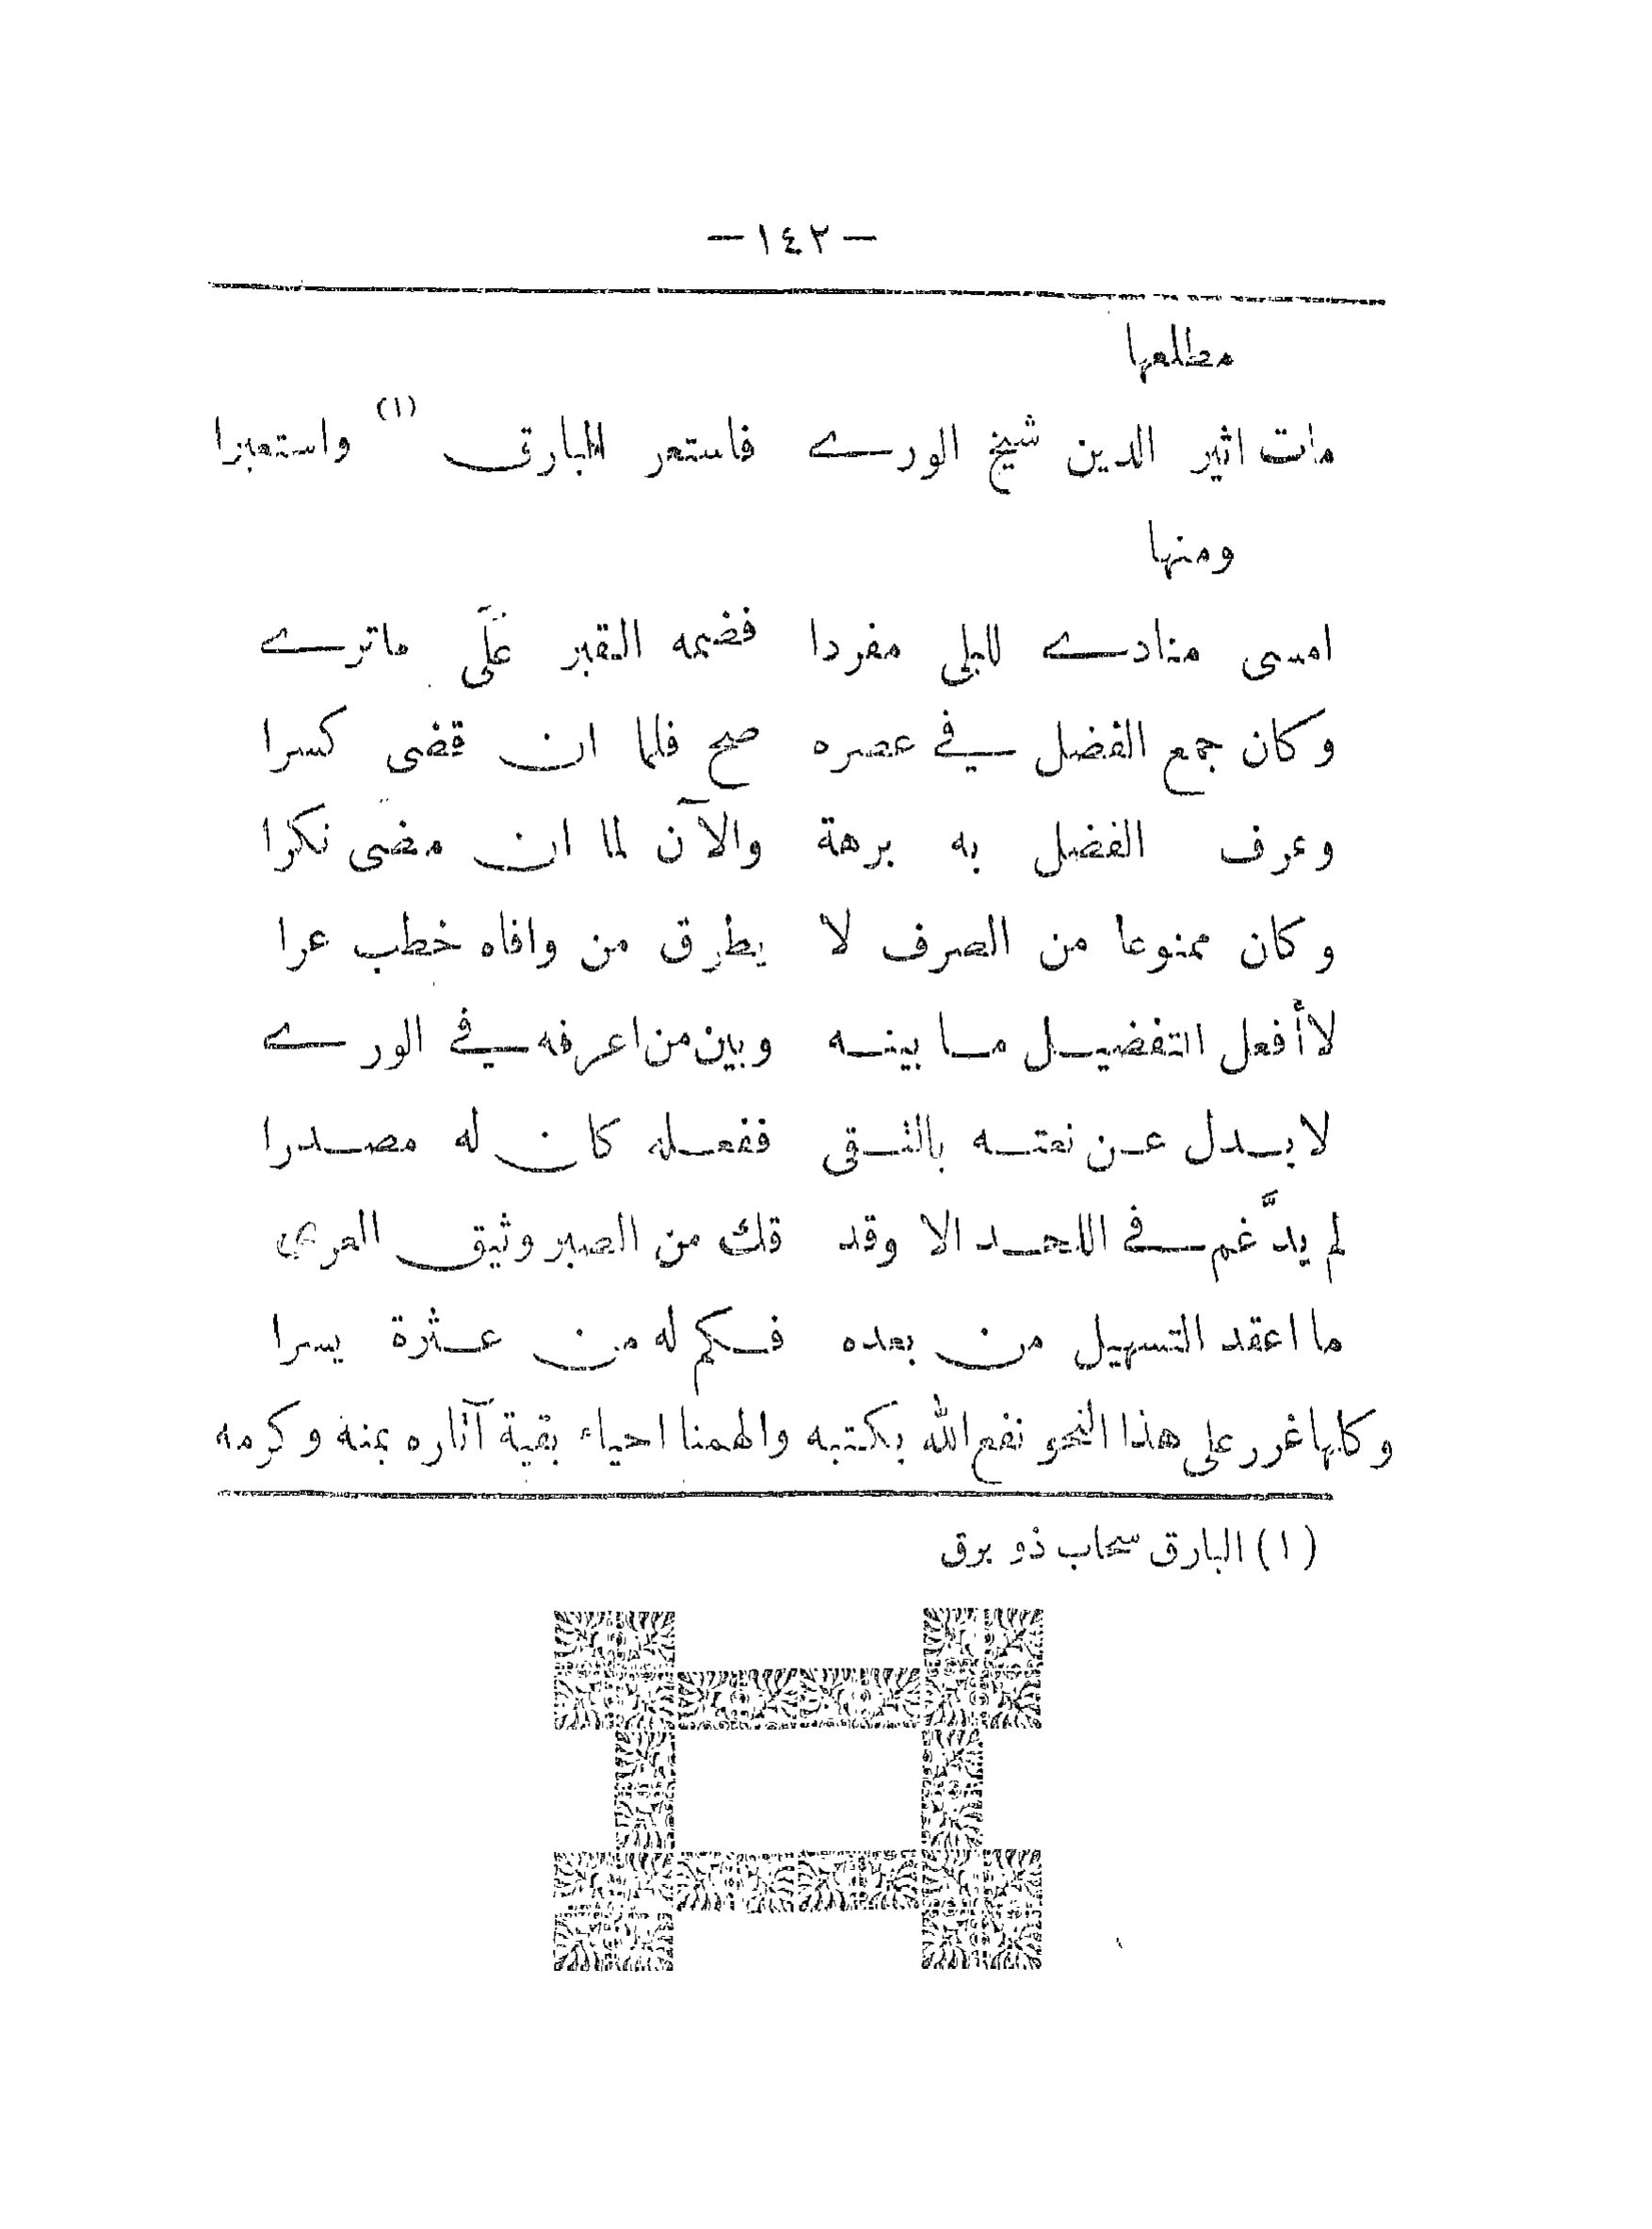 — ١٤٢ —
مطلعها
مات اثير الدين شيخ الورى فاستعر البارق (١) واستعبرا
ومنها
امسى منادى للبلى مفردا فضمه القبر على ماترى
وكان جمع الفضل في عصره صح فلما ان قضى كسرا
وعرف الفضل به برهة والآن لما ان مضى نكرا
وكان ممنوعا من الصرف لا يطرق من وافاه خطب عرا
لاأفعل التفضيل ما بينه وبين من اعرفه في الورى
لا بدل عن نعته بالتقى ففعله كان له مصدرا
لم يدَّغم في اللحد الا وقد فك من الصبر وثيق العرى
ما اعقد التسهيل من بعده فكم له من عثرة يسرا
وكلها غرر على هذا النحو نفع الله بكتبه والهمنا احياء بقية آثاره بمنه وكرمه
(١) البارق سحاب ذو برق